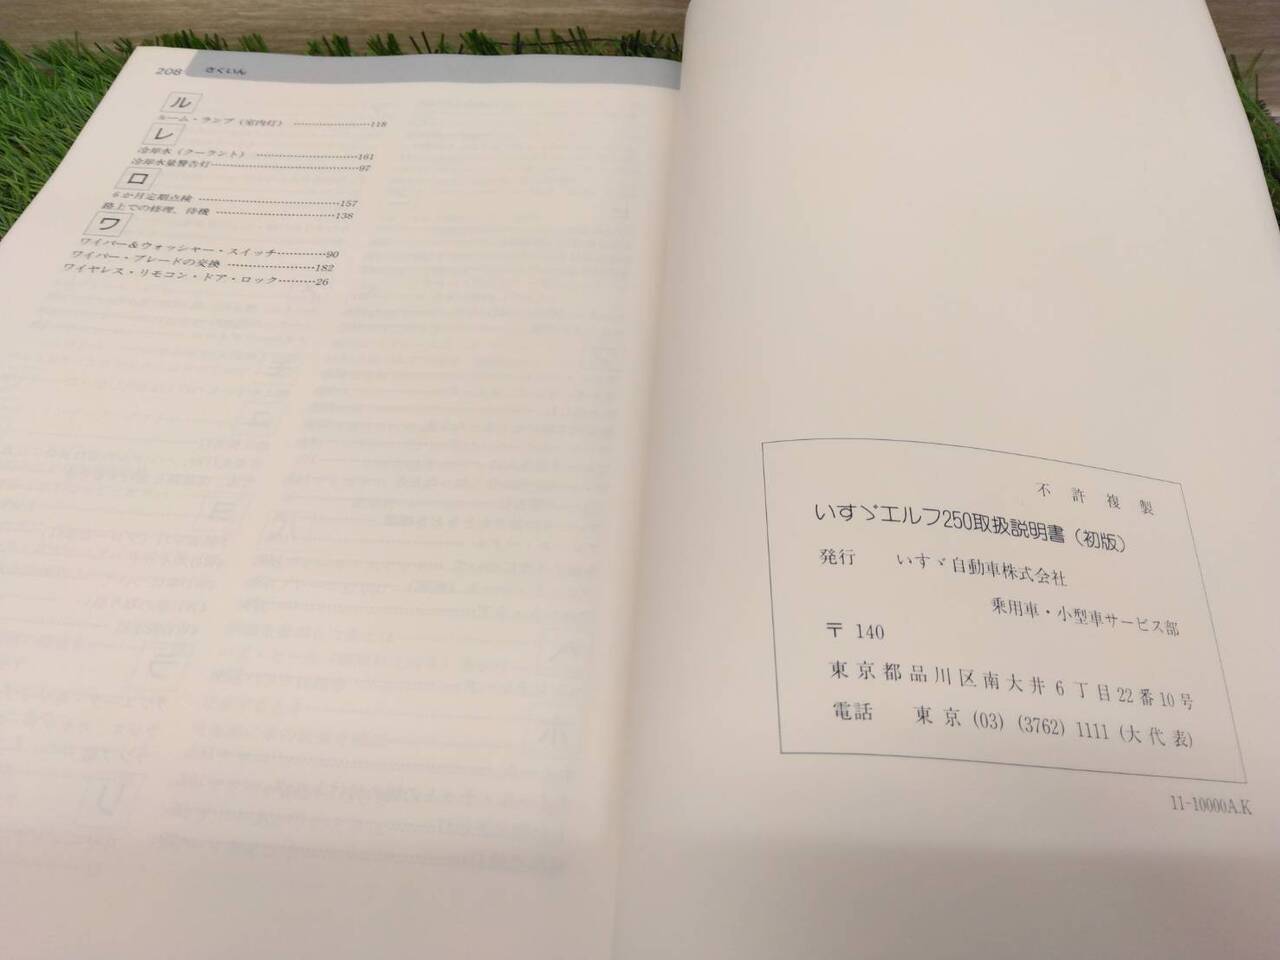 208 さくいん
ル
ルーム・ランプ（室内灯） ……………………118
レ
冷却水（クーラント） ……………………………161
冷却水量警告灯……………………………………97
ロ
6か月定期点検 ……………………………………157
路上での修理、待機 ………………………………138
ワ
ワイパー＆ウォッシャー・スイッチ…………90
ワイパー・ブレードの交換 ……………………182
ワイヤレス・リモコン・ドア・ロック………26
不許複製
いすゞエルフ250取扱説明書（初版）
発行 いすゞ自動車株式会社
乗用車・小型車サービス部
〒 140
東京都品川区南大井6丁目22番10号
電話 東京 (03) (3762) 1111 (大代表)
11-10000A.K